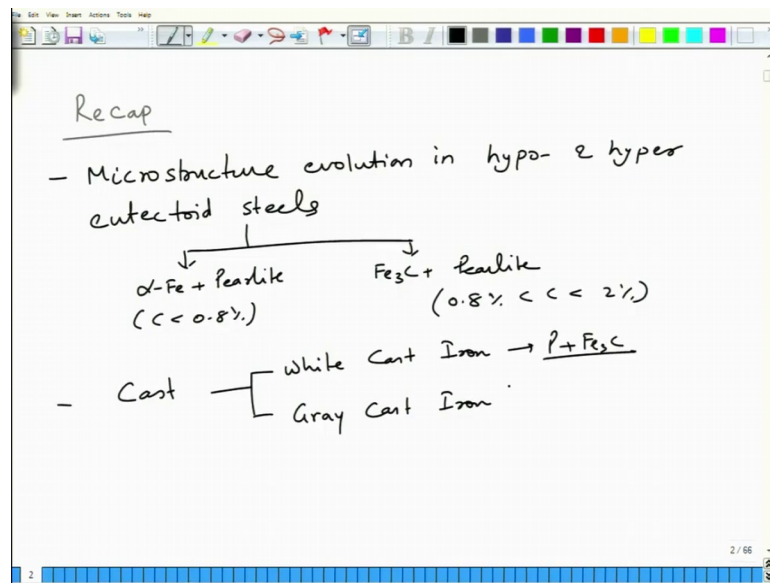 File Edit View Insert Actions Tools Help
B I
Recap
- Microstructure evolution in hypo- & hyper
eutectoid steels
α-Fe + Pearlite
(C < 0.8%)
Fe₃C + Pearlite
(0.8% < C < 2%)
- Cast
White Cast Iron → P + Fe₃C
Gray Cast Iron
2 / 66
2